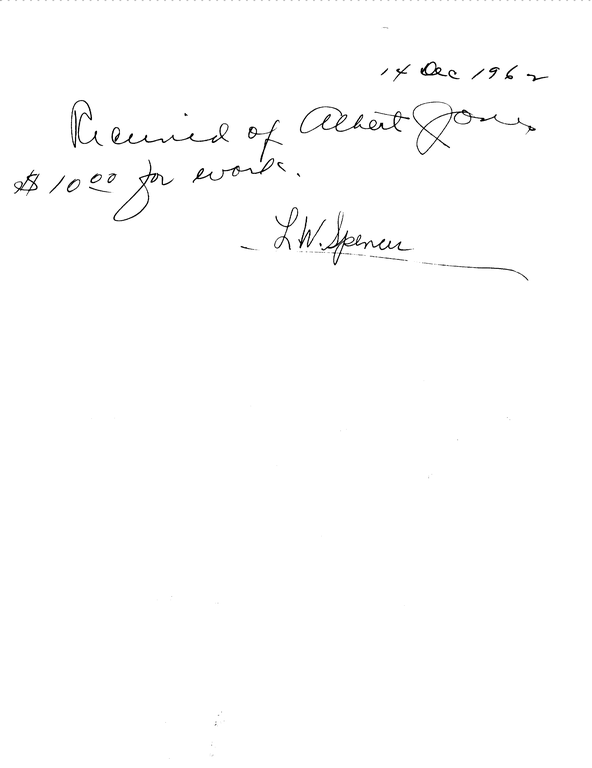 14 Dec 1962
Received of Albert Jones
$10.00 for work.
L.W. Spencer